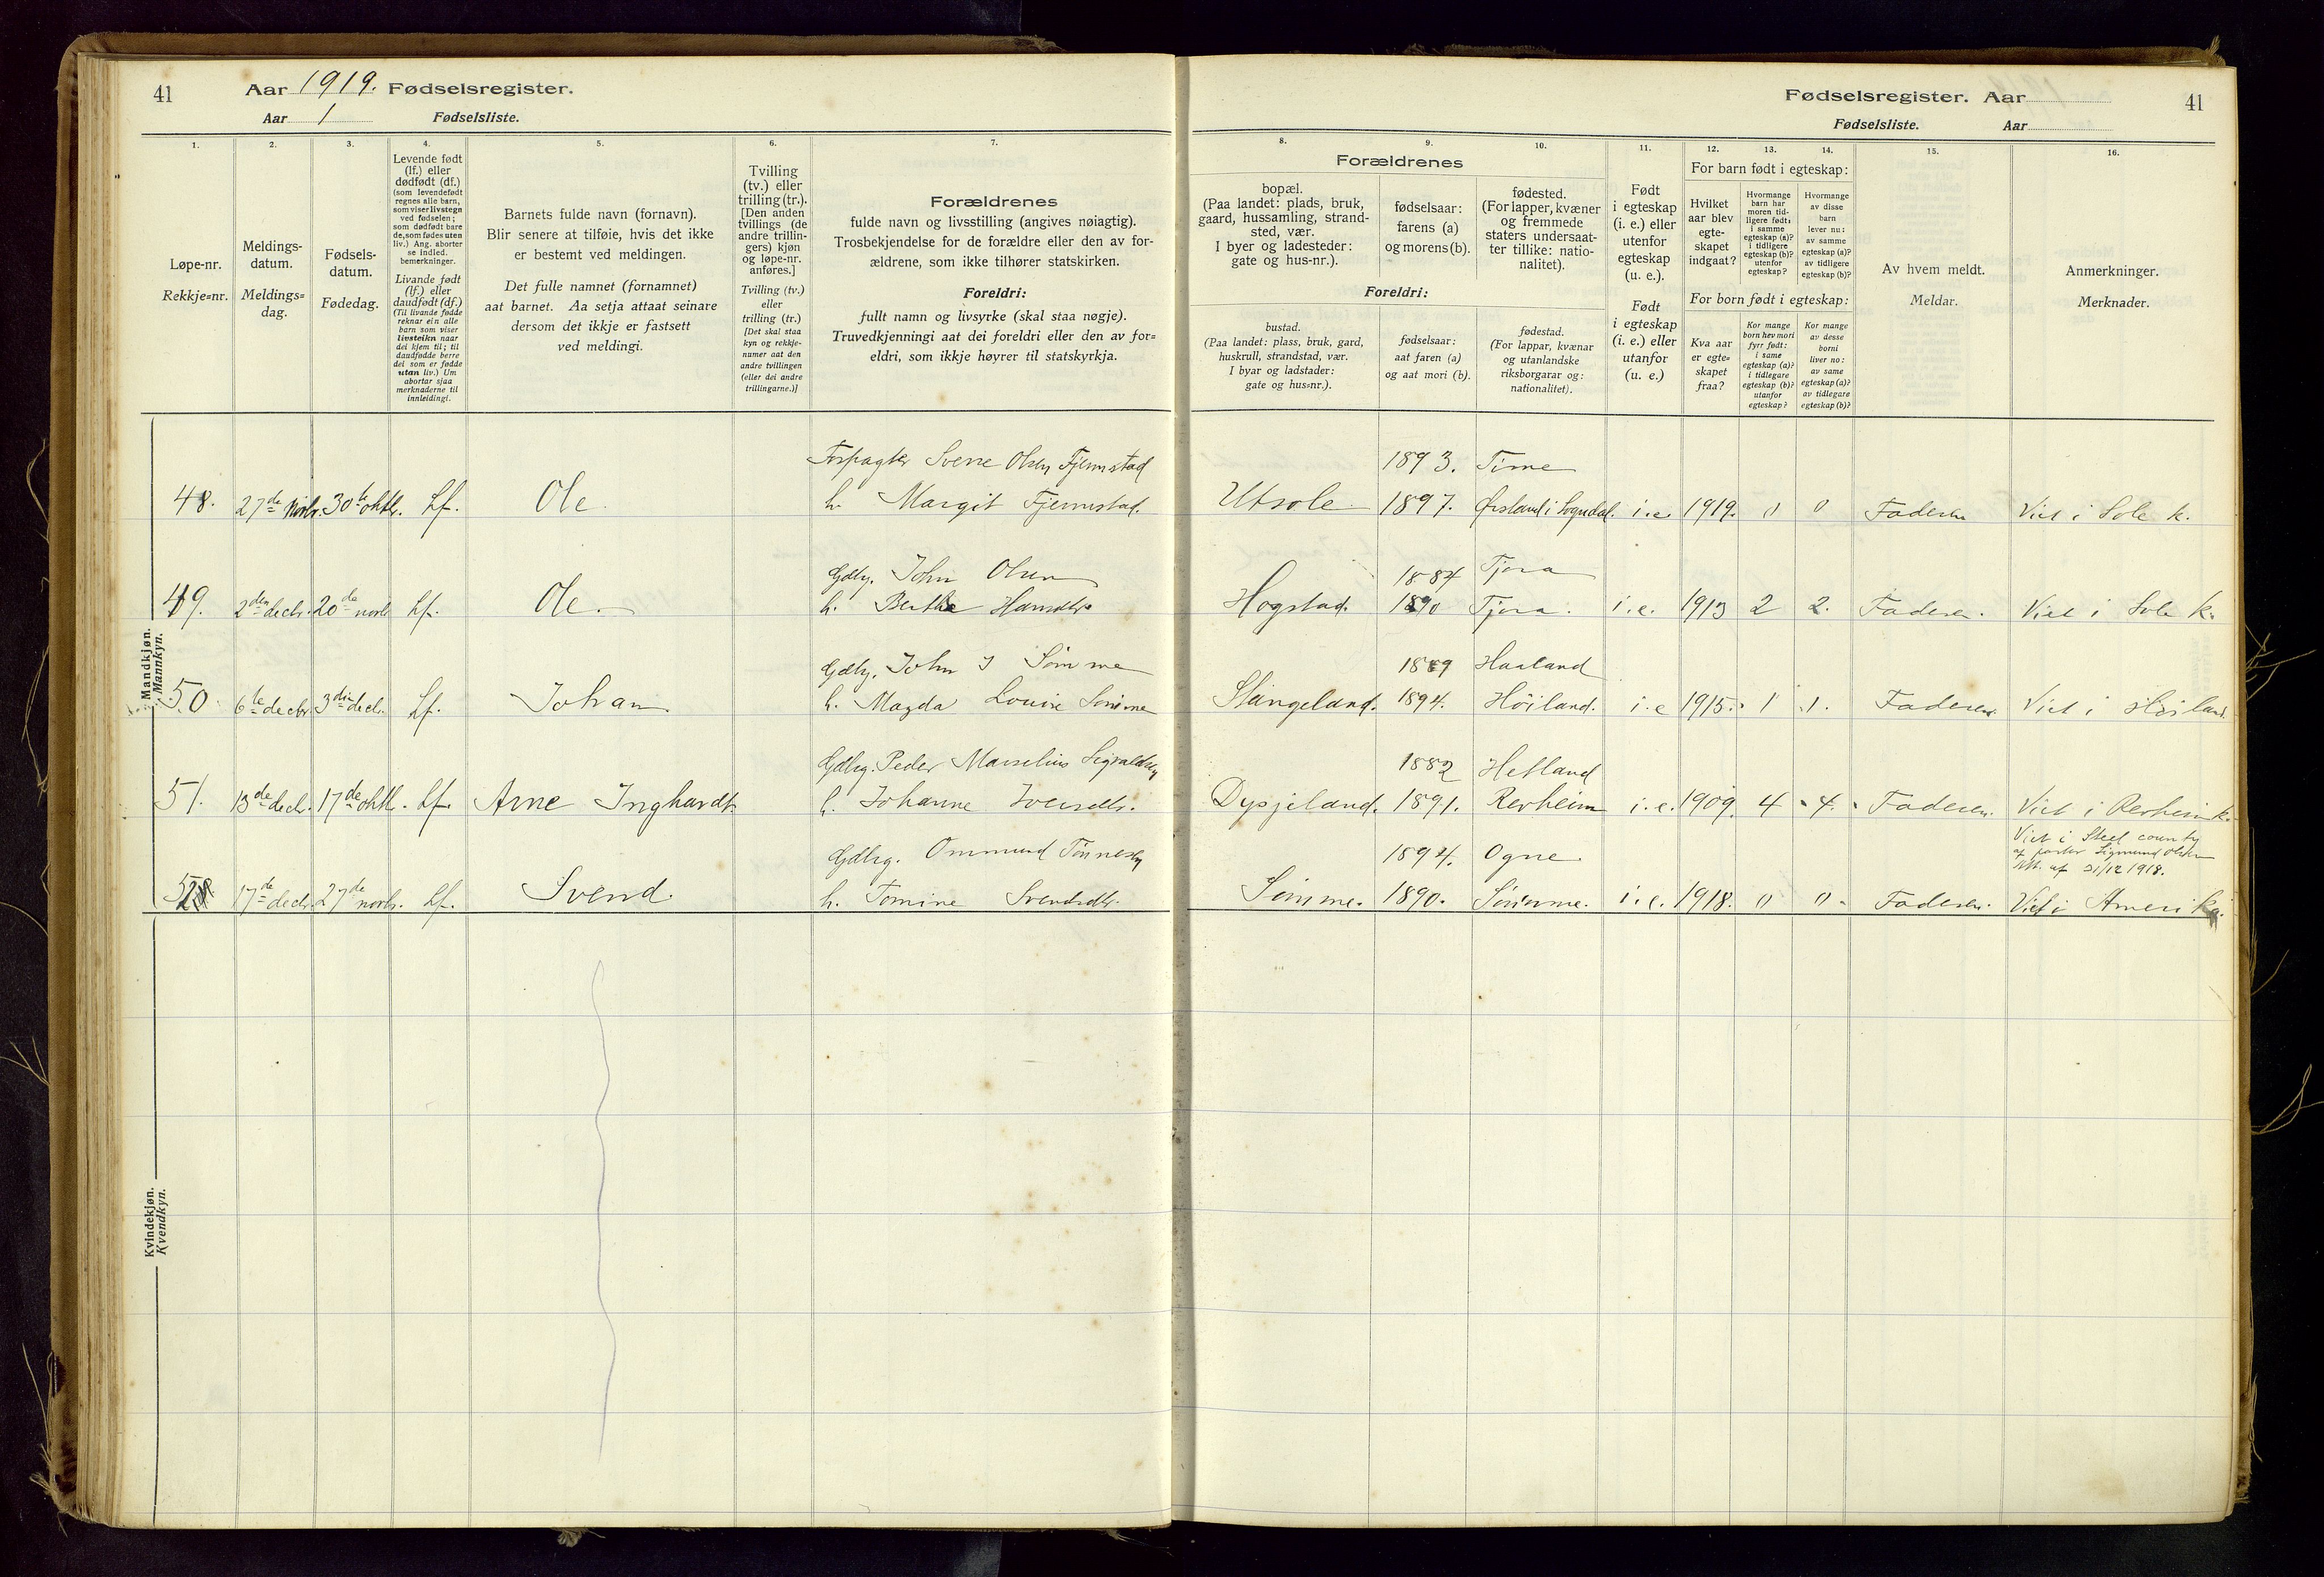 41
Aar 1919. Fødselsregister.
Aar 1 Fødselsliste.
1.
2.
3.
4.
5.
6.
7.
Løpe-nr.
Rekkje=nr.
Meldings-
datum.
Meldings=
dag.
Fødsels-
datum.
Fødedag.
Levende født
(lf.) eller
dødfødt (df.)
(som levendefødt
regnes alle barn,
som viser livstegn
ved fødselen;
som dødfødt bare
de, som fødes uten
liv.) Ang. aborter
se indled.
bemerkninger.
Livande født
(lf.) eller
daudfødt (df.)
(Til livande fødde
reknar ein alle
barn som viser
livsteikn naar
dei kjem til; til
daudfødde berre
dei som er fødde
utan liv.) Um
abortar sjaa
merknaderne til
innleidingi.
Barnets fulde navn (fornavn).
Blir senere at tilføie, hvis det ikke
er bestemt ved meldingen.
Det fulle namnet (fornamnet)
aat barnet. Aa setja attaat seinare
dersom det ikkje er fastsett
ved meldingi.
Tvilling
(tv.) eller
trilling (tr.).
[Den anden
tvillings (de
andre trillin-
gers) kjøn
og løpe-nr.
anføres.]
Tvilling (tv.)
eller
trilling (tr.)
[Det skal staa
kyn og rekkje-
numer aat den
andre tvillingen
(eller dei andre
trillingarne.)]
Forældrenes
fulde navn og livsstilling (angives nøiagtig).
Trosbekjendelse for de forældre eller den av for-
ældrene, som ikke tilhører statskirken.
Foreldri:
fullt namn og livsyrke (skal staa nøgje).
Truvedkjenningi aat dei foreldri eller den av for=
eldri, som ikkje høyrer til statskyrkja.
Fødselsregister. Aar
41
Fødselsliste. Aar
8.
9.
10.
11.
12.
13.
14.
15.
16.
Forældrenes
bopæl.
(Paa landet: plads, bruk,
gaard, hussamling, strand-
sted, vær.
I byer og ladesteder:
gate og hus-nr.).
fødselsaar:
farens (a)
og morens (b).
fødested.
(For lapper, kvæner
og fremmede
staters undersaat-
ter tillike: natio-
nalitet).
Foreldri:
bustad.
(Paa landet: plass, bruk, gard,
huskrull, strandstad, vær.
I byar og ladstader:
gate og hus=nr.).
fødselsaar:
aat faren (a)
og aat mori (b).
fødestad.
(For lappar, kvænar
og utanlandske
riksborgarar og:
nationalitet).
Født
i egteskap
(i. e.) eller
utenfor
egteskap
(u. e.).
Født
i egteskap
(i. e.) eller
utanfor
(u. e.)
For barn født i egteskap:
Hvilket
aar blev
egte-
skapet
indgaat?
Hvormange
barn har
moren tid-
ligere født:
i samme
egteskap (a)?
i tidligere
egteskap (b)?
utenfor
egteskap?
Hvormange
av disse
barn
lever nu:
av samme
egteskap (a)?
av tidligere
egteskap (b)?
For born født i egteskap:
Kva aar
er egte=
skapet
fraa?
Kor mange
born hev mori
fyrr født:
i same
egteskap (a)?
i tidlegare
egteskap (b)?
utanfor
egteskap?
Kor mange
av desse
borni
liver no:
av same
egteskap (a)?
av tidlegare
egteskap (b)?
Av hvem meldt.
Meldar.
Anmerkninger.
Merknader.
Mandkjøn.
Mannkyn.
Forpagter Sverre Olsen Fjermestad 1893. Time
48. 27de Novbr. 30te oktbr. Lf. Ole. h. Margit Fjermestad. Utsole. 1897. Ørsland i Sogndal. i.e 1919. 0 0 Faderen Viet i Sole k.
Gdbr. John Olsen 1884 Tjora
49. 2den decbr. 20de novbr. Lf. Ole. h. Berthe Hansdtr. Hogstad. 1890 Tjora. i.e. 1913 2 2. Faderen. Viet i Sole k.
Gdbr. John J Sømme 1889 Haaland
50 6te decbr. 3die decbr. Lf. Johan h. Magda Louise Sømme Stangeland. 1894. Höiland. i.e 1915. 1 1. Faderen. Viet i Höiland.
Gdbr. Peder Marselius Sigvaldsen 1882 Hetland
51. 13de decbr. 17de oktbr. Lf. Arne Inghardt h. Johanne Iversdtr. Dysjeland. 1891. Revheim i.e. 1909. 4 4. Faderen. Viet i Revheim k.
Gdbr. Ommund Tønnesen 1894. Ogne Viet i Steel county
af pastor Sigmund Olsen
Att. af 21/12 1918.
52. 17de decbr. 27de novbr. Lf. Svend. h. Tomine Svendsdtr. Sømme. 1890. Sømme. i.e. 1918. 0 0. Faderen. Viet i Amerika.
Kvindekjøn.
Kvendkyn.